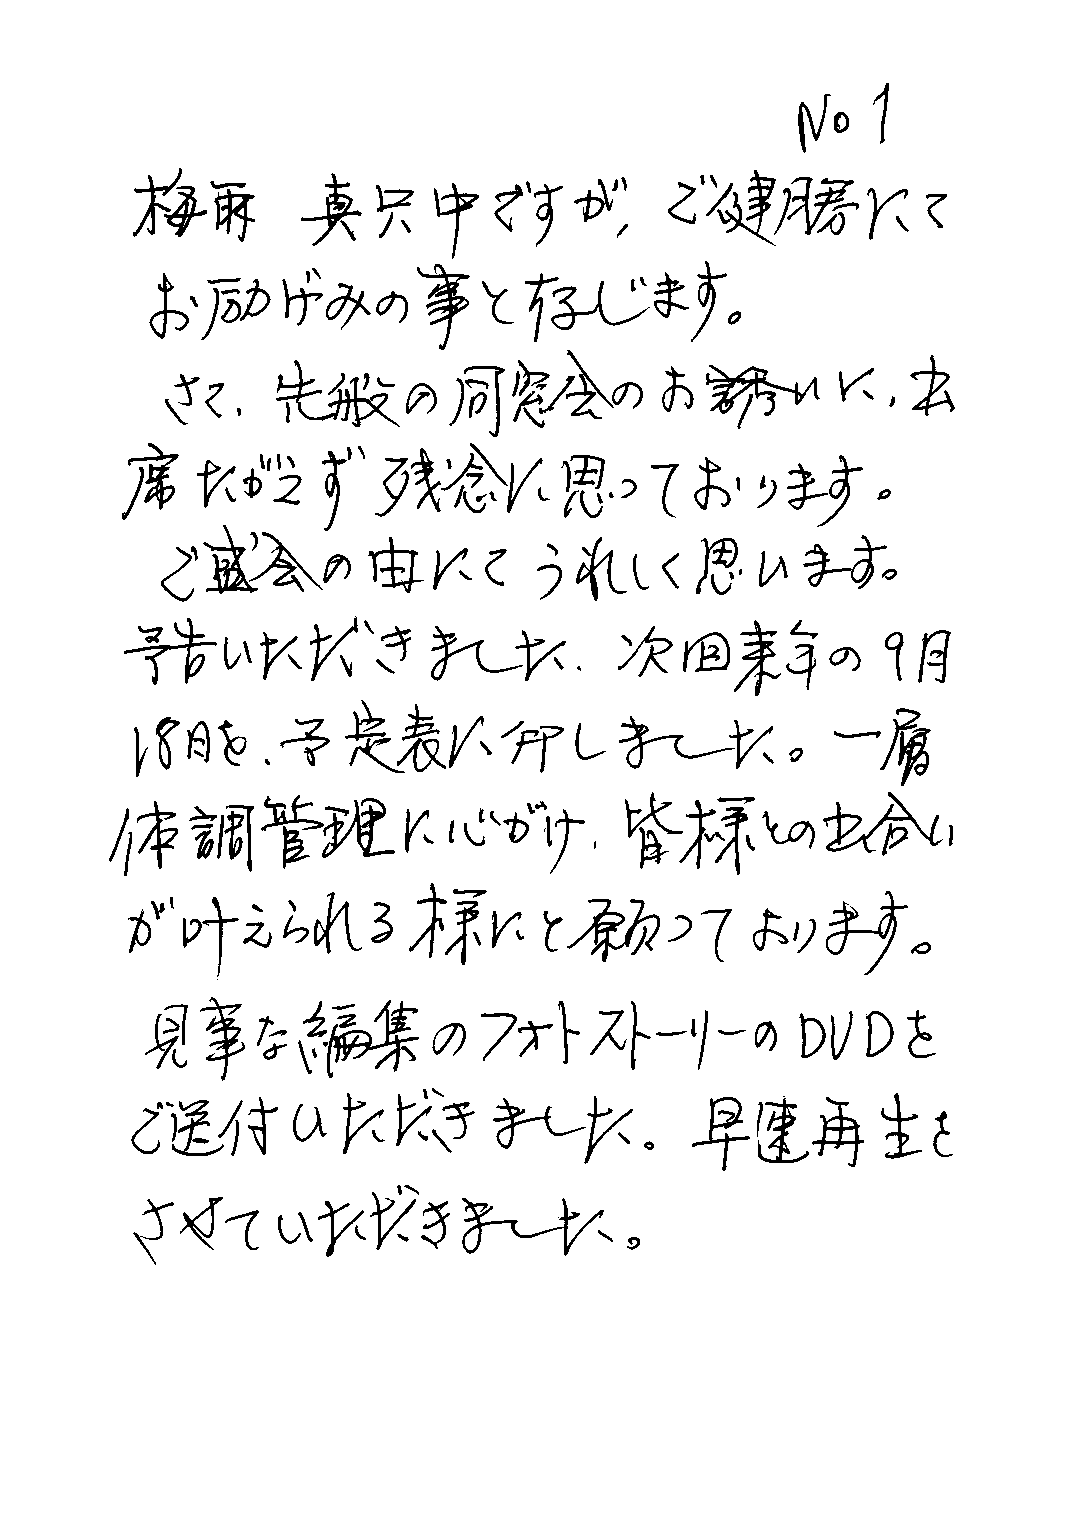 No 1
梅雨 真只中ですが、ご健勝にて
お励げみの事と存じます。
さて、先般の同窓会のお誘いに、出
席たがえず残念に思っております。
ご盛会の由にてうれしく思います。
予告いただきました、次回来年の9月
18日を、予定表に印しました。一層
体調管理に心がけ、皆様との出合い
が叶えられる様にと願っております。
見事な編集のフォトストーリーのDVDを
ご送付いただきました。早速再生を
させていただきました。